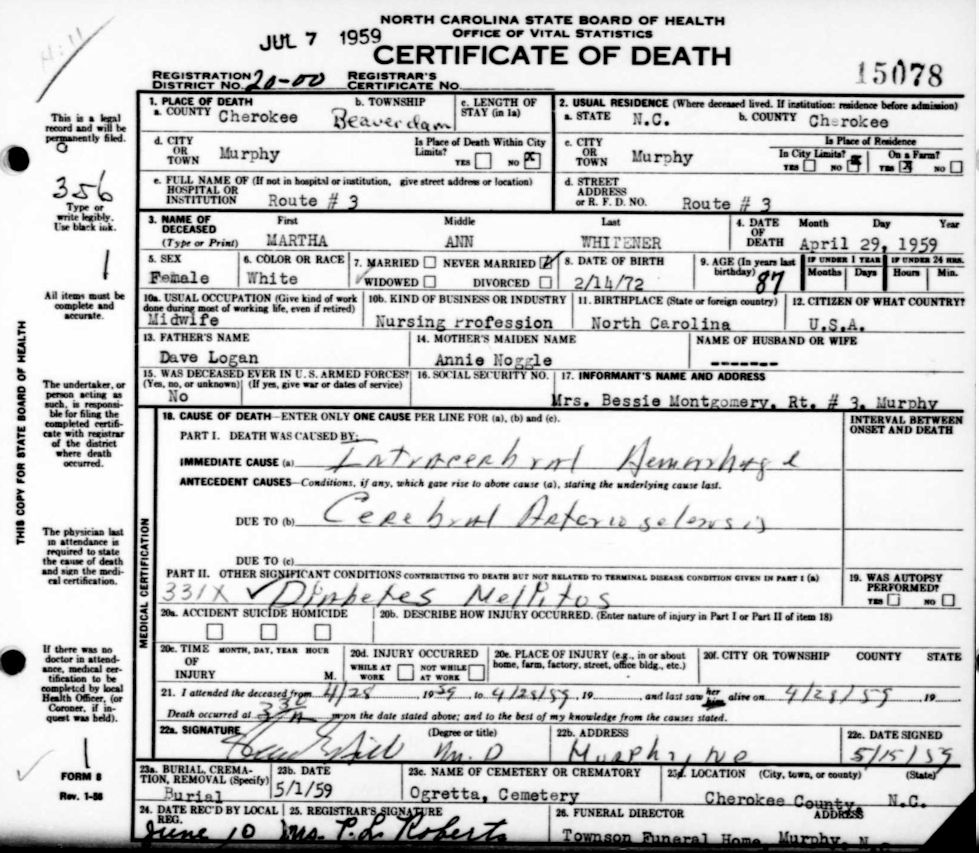 NORTH CAROLINA STATE BOARD OF HEALTH
OFFICE OF VITAL STATISTICS
JUL 7 1959
CERTIFICATE OF DEATH
15078
REGISTRATION DISTRICT No. 20-00 REGISTRAR'S CERTIFICATE No.
This is a legal record and will be permanently filed.
356
Type or write legibly. Use black ink.
All items must be complete and accurate.
THIS COPY FOR STATE BOARD OF HEALTH
The undertaker, or person acting as such, is responsible for filing the completed certificate with registrar of the district where death occurred.
The physician last in attendance is required to state the cause of death and sign the medical certification.
If there was no doctor in attendance, medical certification to be completed by local Health Officer, (or Coroner, if inquest was held).
FORM 8
Rev. 1-56
1. PLACE OF DEATH
a. COUNTY Cherokee
b. TOWNSHIP Beaverdam
c. LENGTH OF STAY (in 1a)
2. USUAL RESIDENCE (Where deceased lived. If institution: residence before admission)
a. STATE N.C. b. COUNTY Cherokee
d. CITY OR TOWN Murphy
Is Place of Death Within City Limits? YES NO X
c. CITY OR TOWN Murphy
Is Place of Residence
In City Limits? YES NO X
On a Farm? YES X NO
e. FULL NAME OF (If not in hospital or institution, give street address or location) HOSPITAL OR INSTITUTION Route # 3
d. STREET ADDRESS or R. F. D. NO. Route # 3
3. NAME OF DECEASED (Type or Print)
First Middle Last
MARTHA ANN WHITENER
4. DATE OF DEATH Month Day Year
April 29, 1959
5. SEX Female
6. COLOR OR RACE White
7. MARRIED NEVER MARRIED WIDOWED DIVORCED
8. DATE OF BIRTH 2/14/72
9. AGE (In years last birthday) 87
IF UNDER 1 YEAR Months Days
IF UNDER 24 HRS. Hours Min.
10a. USUAL OCCUPATION (Give kind of work done during most of working life, even if retired) Midwife
10b. KIND OF BUSINESS OR INDUSTRY Nursing Profession
11. BIRTHPLACE (State or foreign country) North Carolina
12. CITIZEN OF WHAT COUNTRY? U.S.A.
13. FATHER'S NAME Dave Logan
14. MOTHER'S MAIDEN NAME Annie Noggle
NAME OF HUSBAND OR WIFE -------
15. WAS DECEASED EVER IN U. S. ARMED FORCES? (Yes, no, or unknown) (If yes, give war or dates of service) No
16. SOCIAL SECURITY NO.
17. INFORMANT'S NAME AND ADDRESS Mrs. Bessie Montgomery, Rt. # 3, Murphy
MEDICAL CERTIFICATION
18. CAUSE OF DEATH—ENTER ONLY ONE CAUSE PER LINE FOR (a), (b) and (c).
INTERVAL BETWEEN ONSET AND DEATH
PART I. DEATH WAS CAUSED BY:
IMMEDIATE CAUSE (a) Intracerebral Hemorrhage
ANTECEDENT CAUSES—Conditions, if any, which gave rise to above cause (a), stating the underlying cause last.
DUE TO (b) Cerebral Arteriosclerosis
DUE TO (c)
PART II. OTHER SIGNIFICANT CONDITIONS CONTRIBUTING TO DEATH BUT NOT RELATED TO TERMINAL DISEASE CONDITION GIVEN IN PART I (a)
331X Diabetes Mellitos
19. WAS AUTOPSY PERFORMED? YES NO
20a. ACCIDENT SUICIDE HOMICIDE
20b. DESCRIBE HOW INJURY OCCURRED. (Enter nature of injury in Part I or Part II of item 18)
20c. TIME OF INJURY MONTH, DAY, YEAR HOUR M.
20d. INJURY OCCURRED WHILE AT WORK NOT WHILE AT WORK
20e. PLACE OF INJURY (e.g., in or about home, farm, factory, street, office bldg., etc.)
20f. CITY OR TOWNSHIP COUNTY STATE
21. I attended the deceased from 4/28 1959 to 4/28/59, 19 and last saw her him alive on 4/28/59 19
Death occurred at 330 m on the date stated above; and to the best of my knowledge from the causes stated.
22a. SIGNATURE (Degree or title) M.D
22b. ADDRESS Murphy, NC
22c. DATE SIGNED 5/15/59
23a. BURIAL, CREMATION, REMOVAL (Specify) Burial
23b. DATE 5/2/59
23c. NAME OF CEMETERY OR CREMATORY Ogretta, Cemetery
23d. LOCATION (City, town, or county) (State) Cherokee County, N.C.
24. DATE REC'D BY LOCAL REG. June 10
25. REGISTRAR'S SIGNATURE Mrs. P. L. Roberts
26. FUNERAL DIRECTOR ADDRESS Townson Funeral Home, Murphy, N.C.